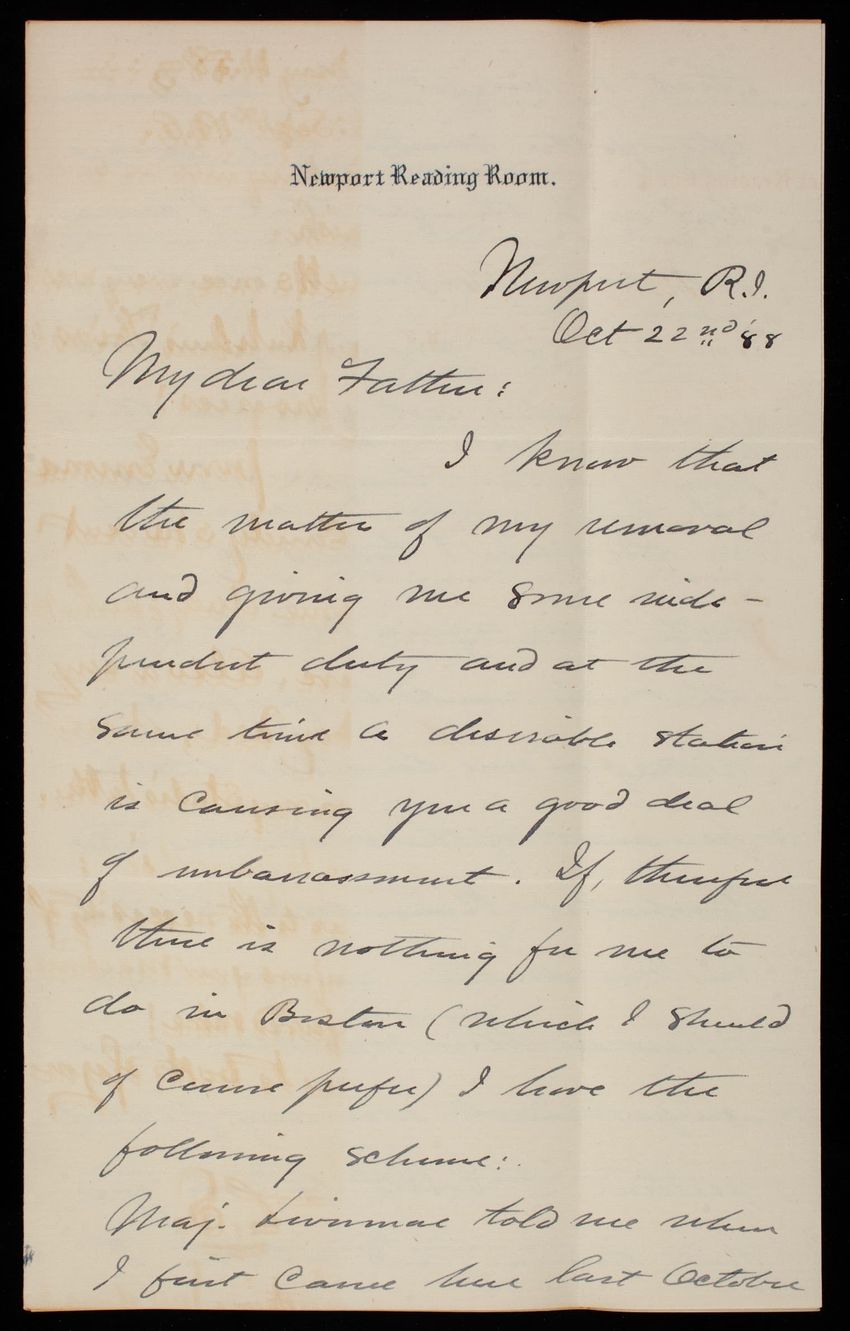 Newport Reading Room.
Newport, R.I.
Oct 22nd '88
My dear Father:
I know that
the matter of my removal
and giving me some inde-
pendent duty and at the
same time a desirable station
is causing you a good deal
of embarrassment. If, therefore
there is nothing for me to
do in Boston (which I should
of course prefer) I have the
following scheme:
Maj. Livermore told me when
I first came here last October